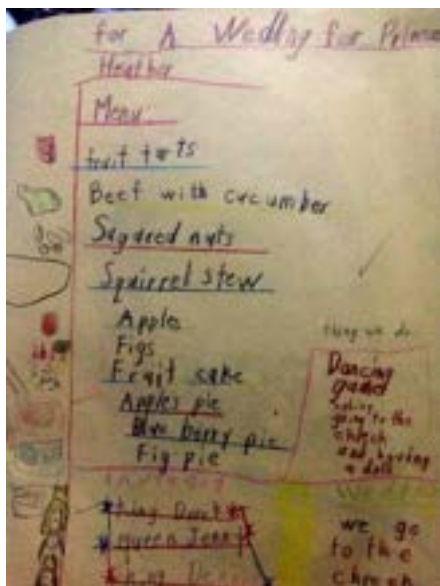 for A Wedding for Prince
Heather
Menu
fruit tarts
Beef with cucumber
Sugared nuts
Squirrel stew
Apple
Figs
Fruit cake
Apples pie
Blue berry pie
Fig pie
thing we do
Dancing
going to the
church
and having
a
King
queen Jenny
King
we go
to the
church